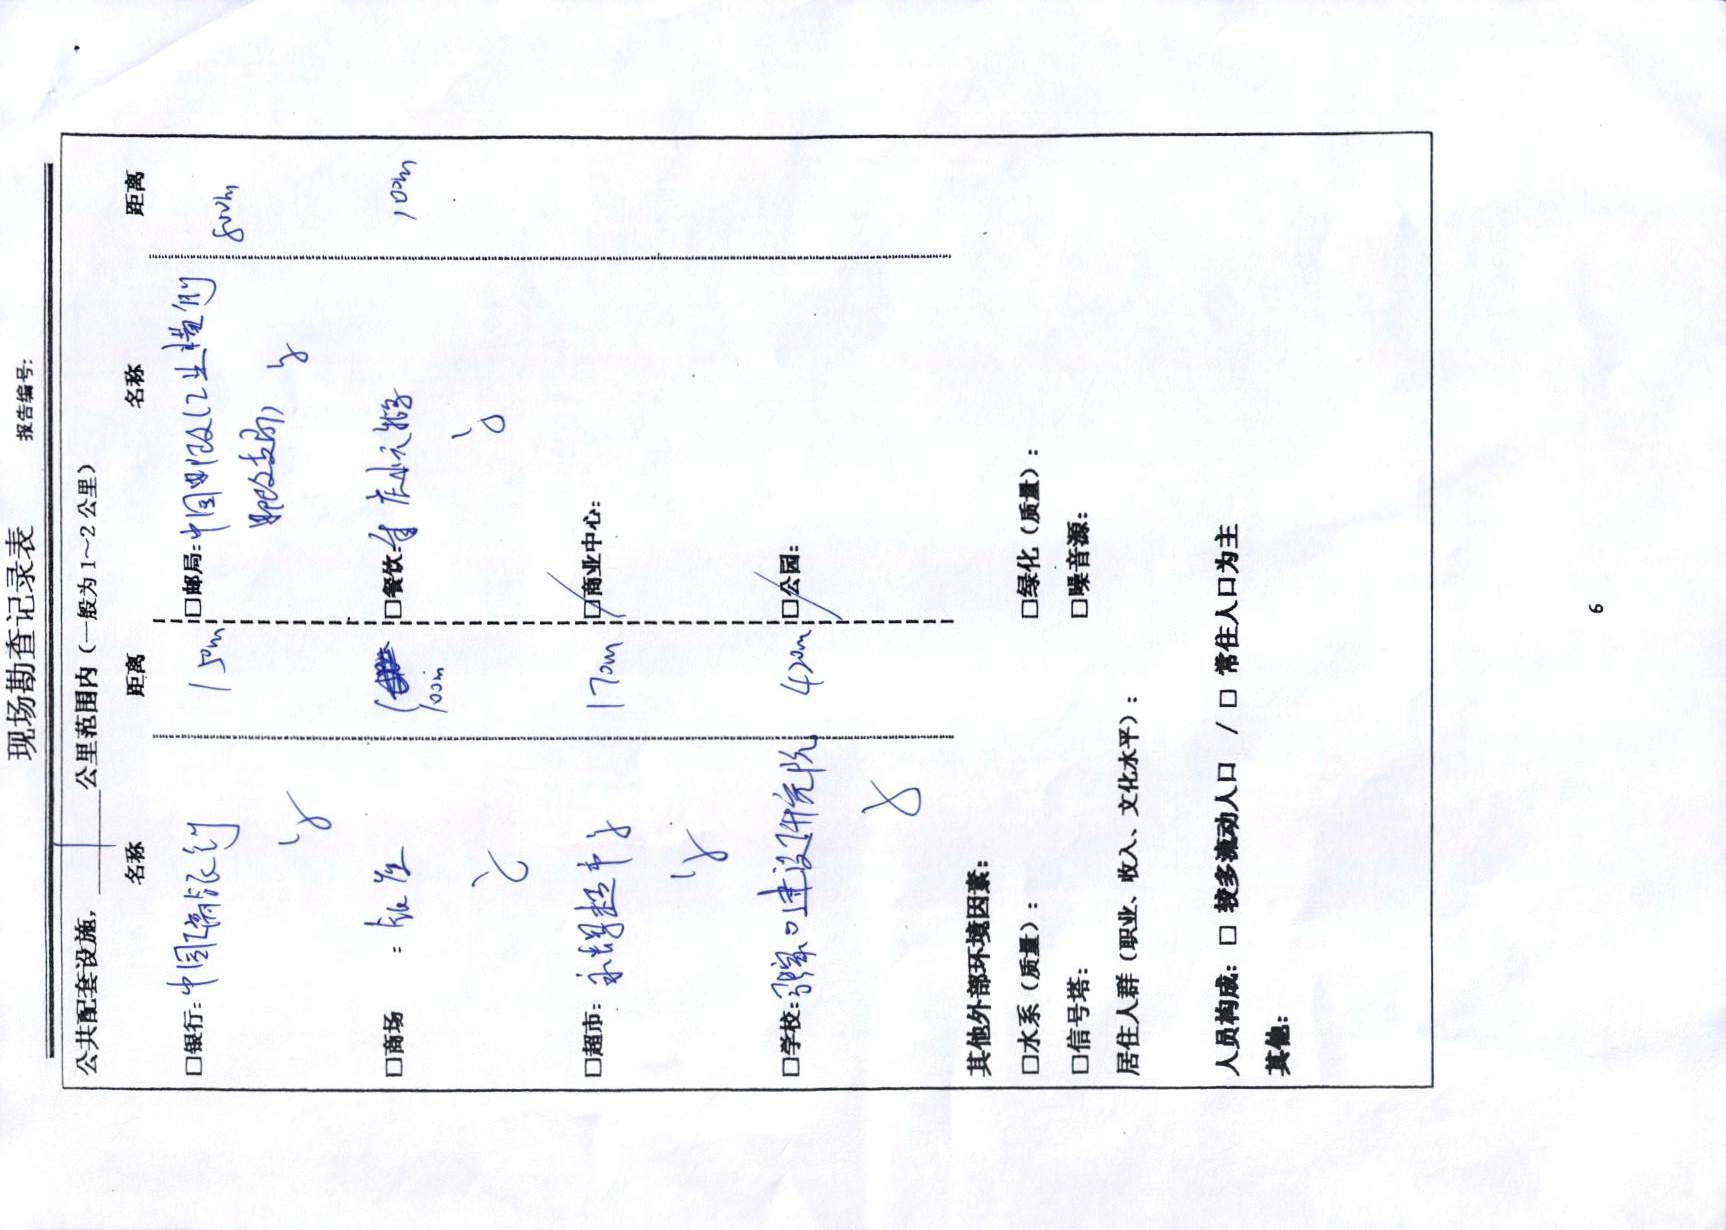 现场勘查记录表
报告编号:
公共配套设施, 1 公里范围内（一般为1~2公里）
名称 距离 名称 距离
□银行: 中国 银行 150m □邮局: 中国邮政 800m
支局)
□商场 : 100m □餐饮: 100m
□超市: 超市 170m □商业中心:
□学校: 建设研究院 420m □公园:
其他外部环境因素:
□水系（质量）: □绿化（质量）:
□信号塔: □噪音源:
居住人群（职业、收入、文化水平）:
人员构成: □ 较多流动人口 / □ 常住人口为主
其他:
6